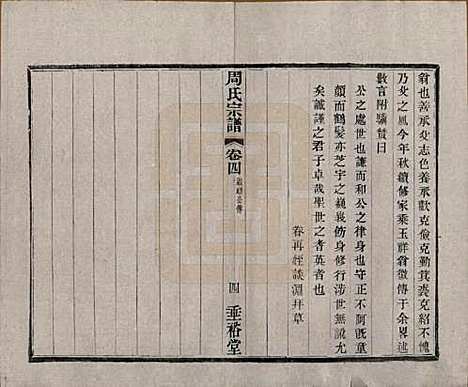 翁也善承父志色養承歡克儉克勤箕裘克紹不愧
乃父之風今年秋續修家乘玉祥翁徵傳于余畧述
數言附驥贊曰
公之處世也謙而和公之律身也守正不阿既童
顏而鶴髮亦芝宇之巍峩飭身修行涉世無訛允
矣誠謹之君子卓哉聖世之耆英者也
眷再姪談淵拜草
周氏宗譜
卷四
公傳
四
垂裕堂